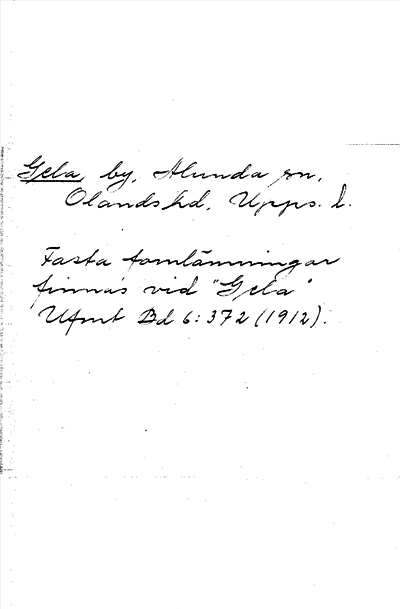 Gela, by, Alunda sn,
Olands hd, Upps. l.
Fasta fornlämningar
finnas vid "Gela"
Ufmt Bd 6: 372 (1912).